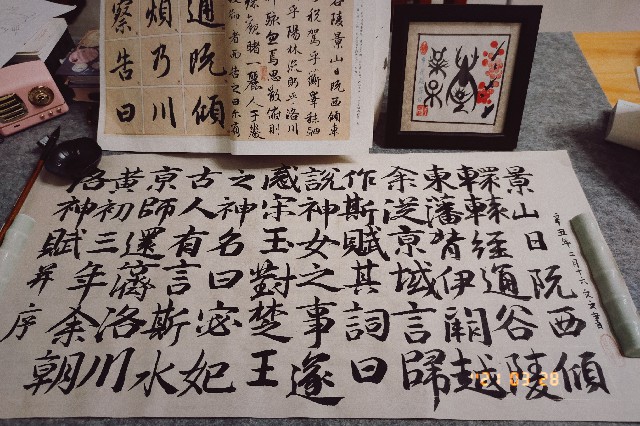 洛神賦并序
黄初三年余朝
京師還濟洛川
古人有言斯水
之神名曰宓妃
感宋玉對楚王
說神女之事遂
作斯賦其詞曰
余從京域言歸
東藩背伊闕越
轘轅經通谷陵
景山日阮西傾
辛丑年二月十六
察告曰
煩乃川
通阮傾
谷陵景山日阮西傾車
税駕乎蘅皋秣駟
乎陽林流眄乎洛川
忽焉思散俯則
睹一麗人于巖
者而告之曰爾有
03 28